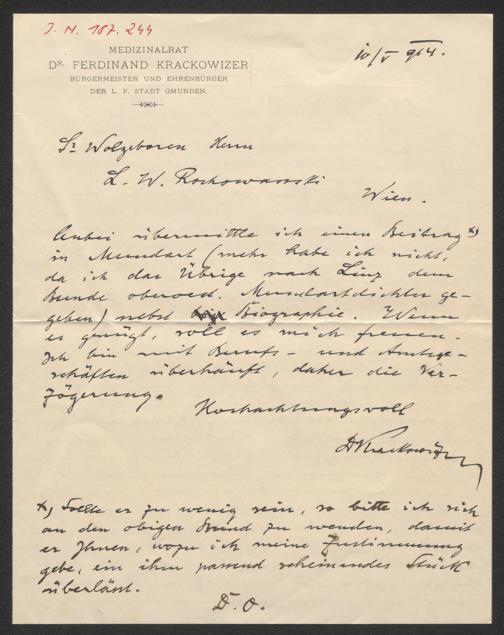 J. N. 187.244
MEDIZINALRAT
DR. FERDINAND KRACKOWIZER
BÜRGERMEISTER UND EHRENBÜRGER
DER L. F. STADT GMUNDEN.
10/V 914.
Sr Wolgeboren Herrn
L. W. Rochowanski
Wien.
Anbei übermittle ich einen Beitrag *)
in Mundart (mehr habe ich nicht,
da ich das Übrige nach Linz dem
Bunde oberoest. Mundartdichter ge-
geben) nebst Biographie. Wenn
es genügt, soll es mich freuen.
Ich bin mit Berufs- und Amtsge-
schäften überhäuft, daher die Ver-
zögerung.
Hochachtungsvoll
DrKrackowizer
*) Sollte er zu wenig sein, so bitte ich sich
an den obigen Bund zu wenden, damit
er Ihnen, wozu ich meine Zustimmung
gebe, ein ihm passend scheinendes Stück
überlässt.
D. O.